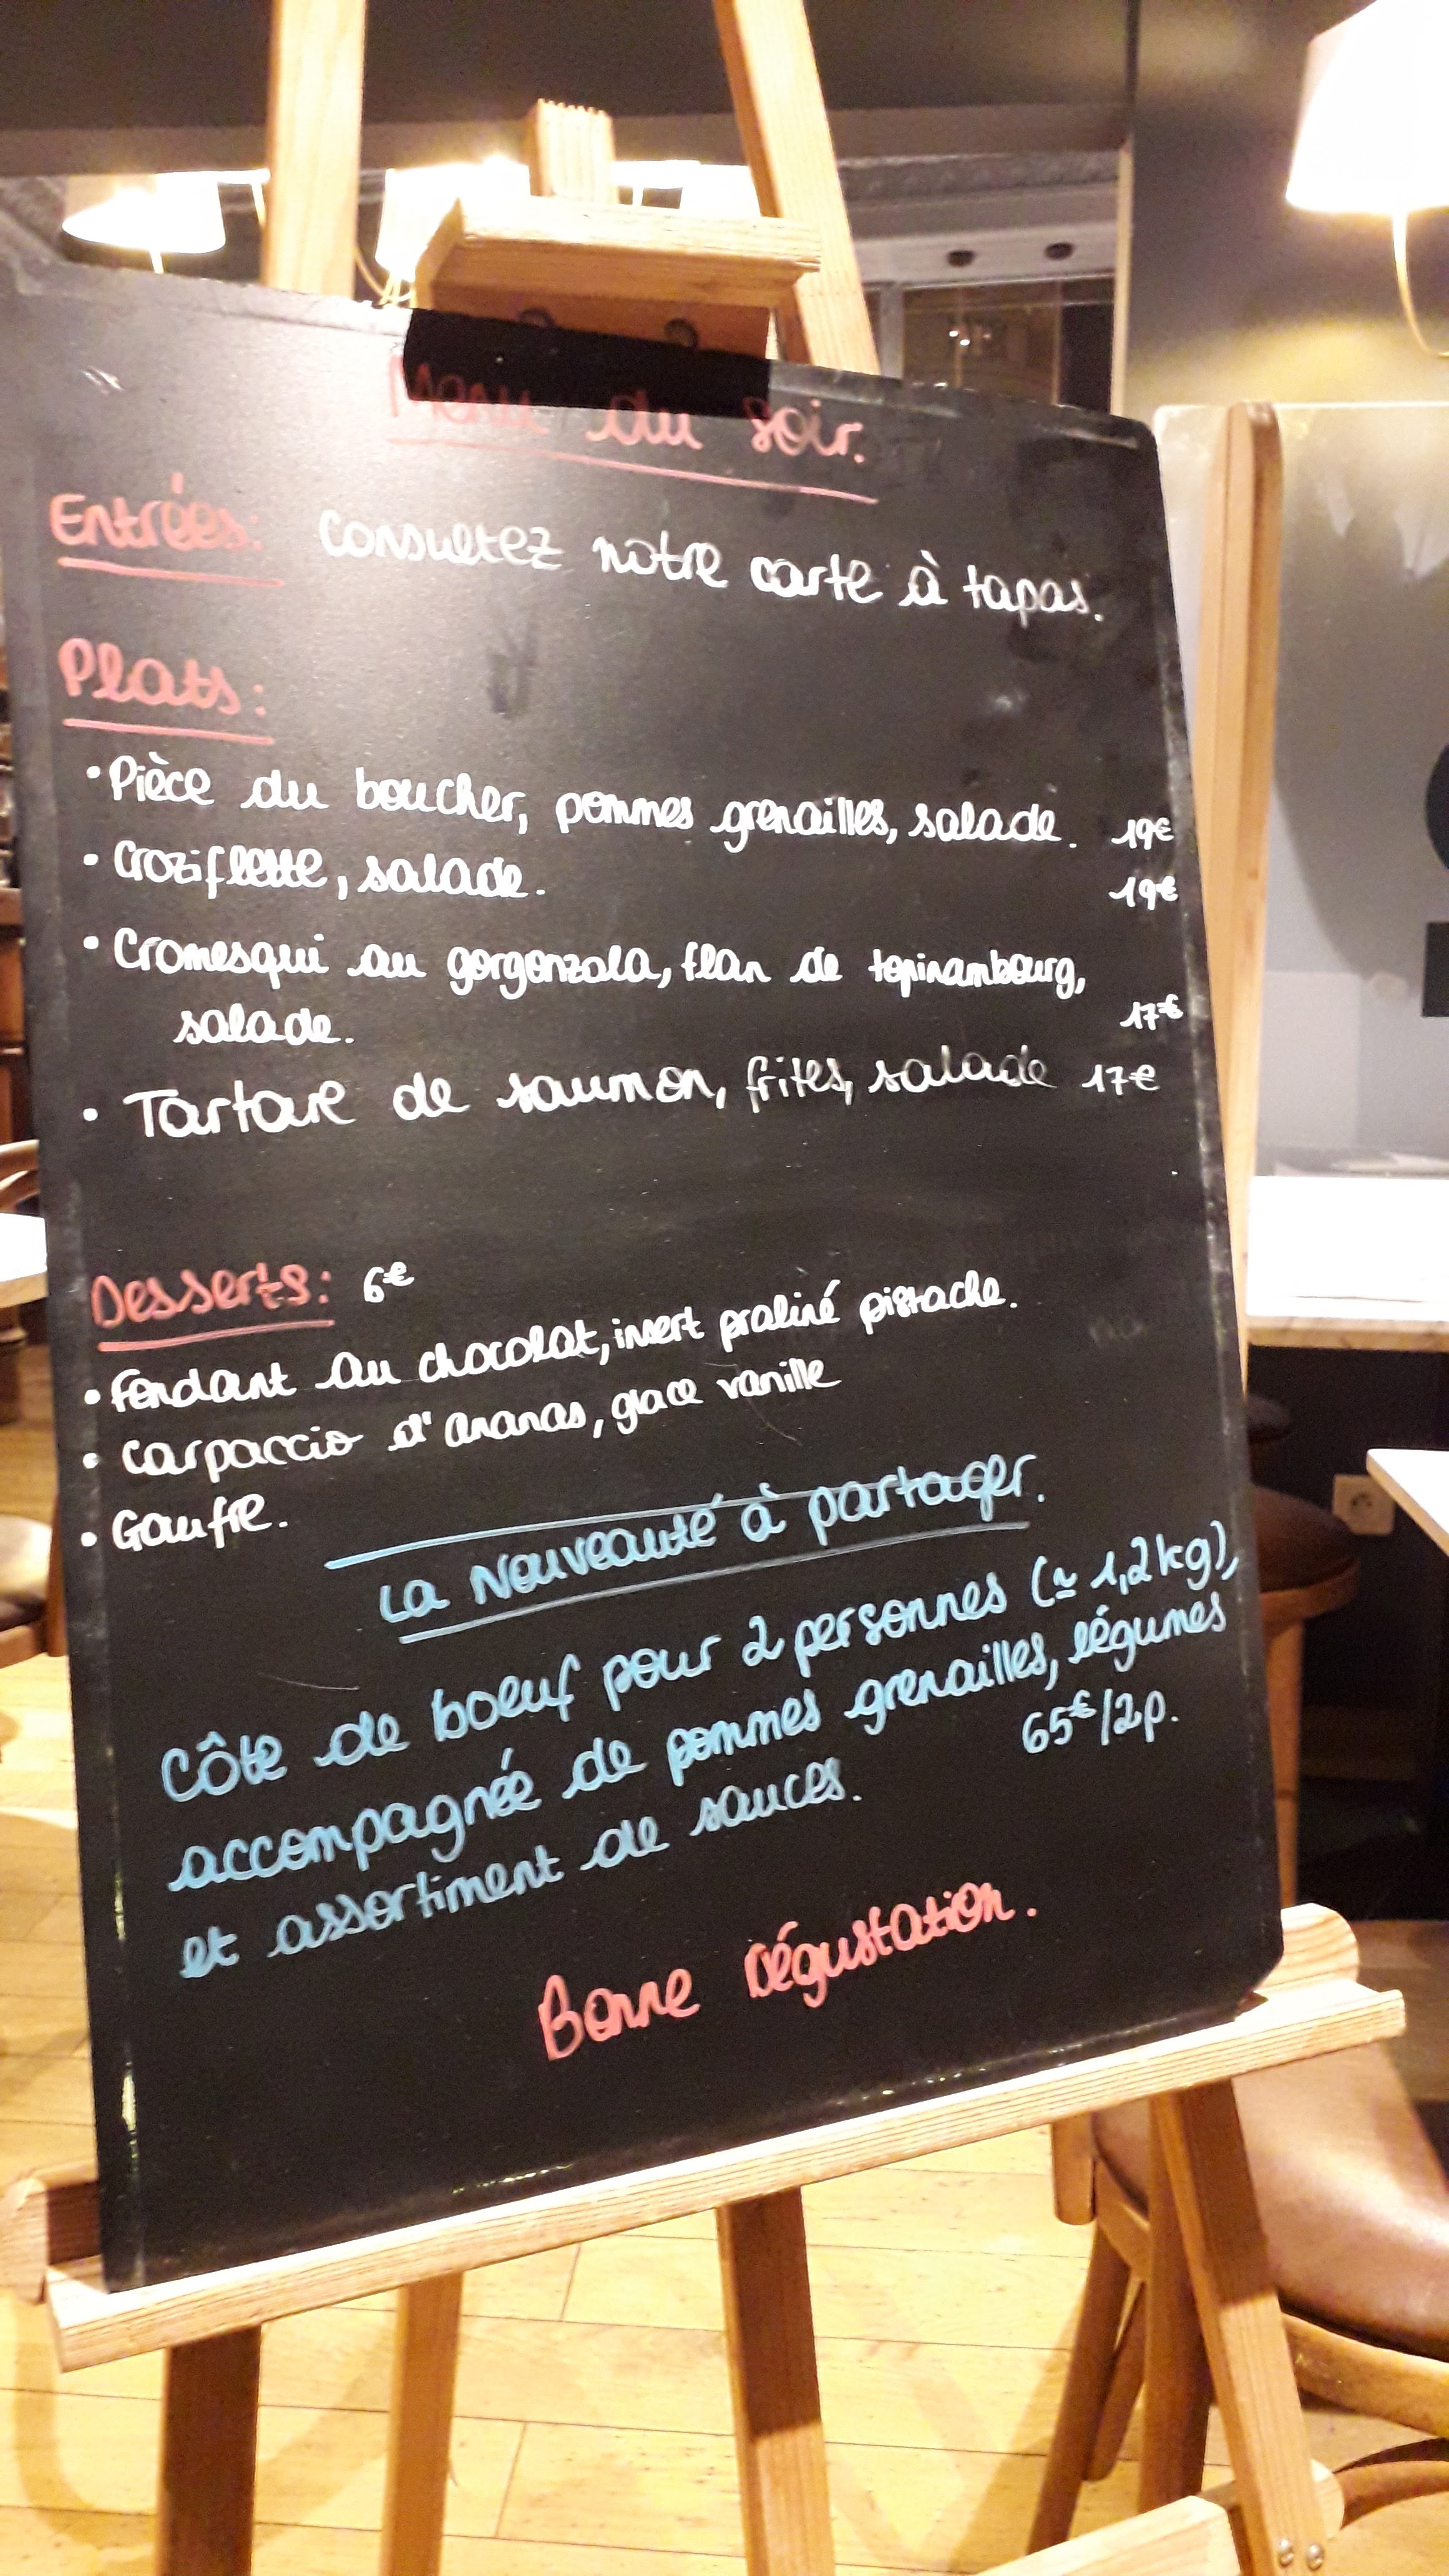 Menu du soir.
Entrées: Consultez notre carte à tapas.
Plats:
• Pièce du boucher, pommes grenailles, salade. 19€
• Croziflette, salade. 19€
• Cromesqui au gorgonzola, flan de topinambourg,
salade. 17€
• Tartare de saumon, frites, salade 17€
Desserts: 6€
• Fondant au chocolat, insert praliné pistache.
• Carpaccio d'ananas, glace vanille
• Gaufre.
La Nouveauté à partager.
Côte de boeuf pour 2 personnes (≃ 1,2kg),
accompagnée de pommes grenailles, légumes
et assortiment de sauces. 65€/2p.
Bonne Dégustation.